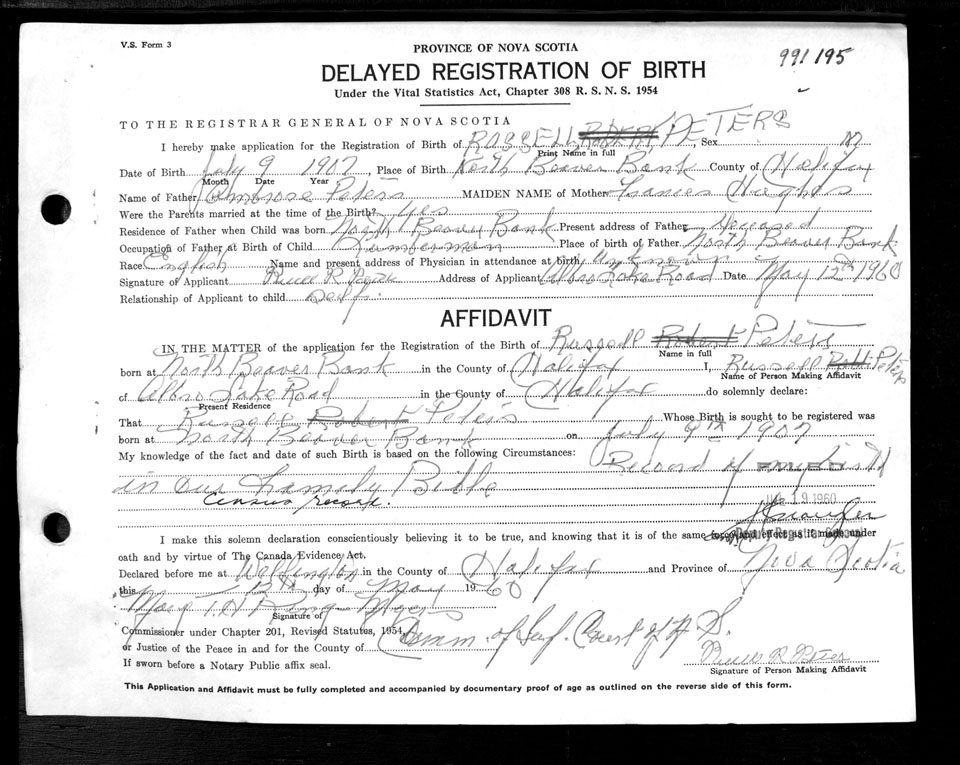 V.S. Form 3
PROVINCE OF NOVA SCOTIA
991 195
DELAYED REGISTRATION OF BIRTH
Under the Vital Statistics Act, Chapter 308 R. S. N. S. 1954
TO THE REGISTRAR GENERAL OF NOVA SCOTIA
I hereby make application for the Registration of Birth of RUSSELL PETERS, Sex M
Print Name in full
Date of Birth July 9 1907, Place of Birth North Beaver Bank County of Halifax
Month Date Year
Name of Father Ambrose Peters MAIDEN NAME of Mother Frances
Were the Parents married at the time of the Birth? Yes
Residence of Father when Child was born North Beaver Bank Present address of Father Deceased
Occupation of Father at Birth of Child Lumberman Place of birth of Father North Beaver Bank
Race English Name and present address of Physician in attendance at birth Unknown
Signature of Applicant Russell R Peters Address of Applicant Albro Lake Road Date May 12th 1960
Relationship of Applicant to child Self
AFFIDAVIT
IN THE MATTER of the application for the Registration of the Birth of Russell Robert Peters
Name in full
born at North Beaver Bank in the County of Halifax I, Russell Robt Peters
Name of Person Making Affidavit
of Albro Lake Road in the County of Halifax do solemnly declare:
Present Residence
That Russell Robert Peters Whose Birth is sought to be registered was
born at North Beaver Bank on July 9th 1907
My knowledge of the fact and date of such Birth is based on the following Circumstances: Record of my birth
in our Family Bible
Census record.
19 1960
I make this solemn declaration conscientiously believing it to be true, and knowing that it is of the same force and effect as if made under
oath and by virtue of The Canada Evidence Act.
Declared before me at Wellington in the County of Halifax and Province of Nova Scotia
this 12th day of May 1960
Mary
Signature of
Commissioner under Chapter 201, Revised Statutes, 1954, Comm. of Sup. Court of N.S.
or Justice of the Peace in and for the County of
Russell R Peters
If sworn before a Notary Public affix seal.
Signature of Person Making Affidavit
This Application and Affidavit must be fully completed and accompanied by documentary proof of age as outlined on the reverse side of this form.